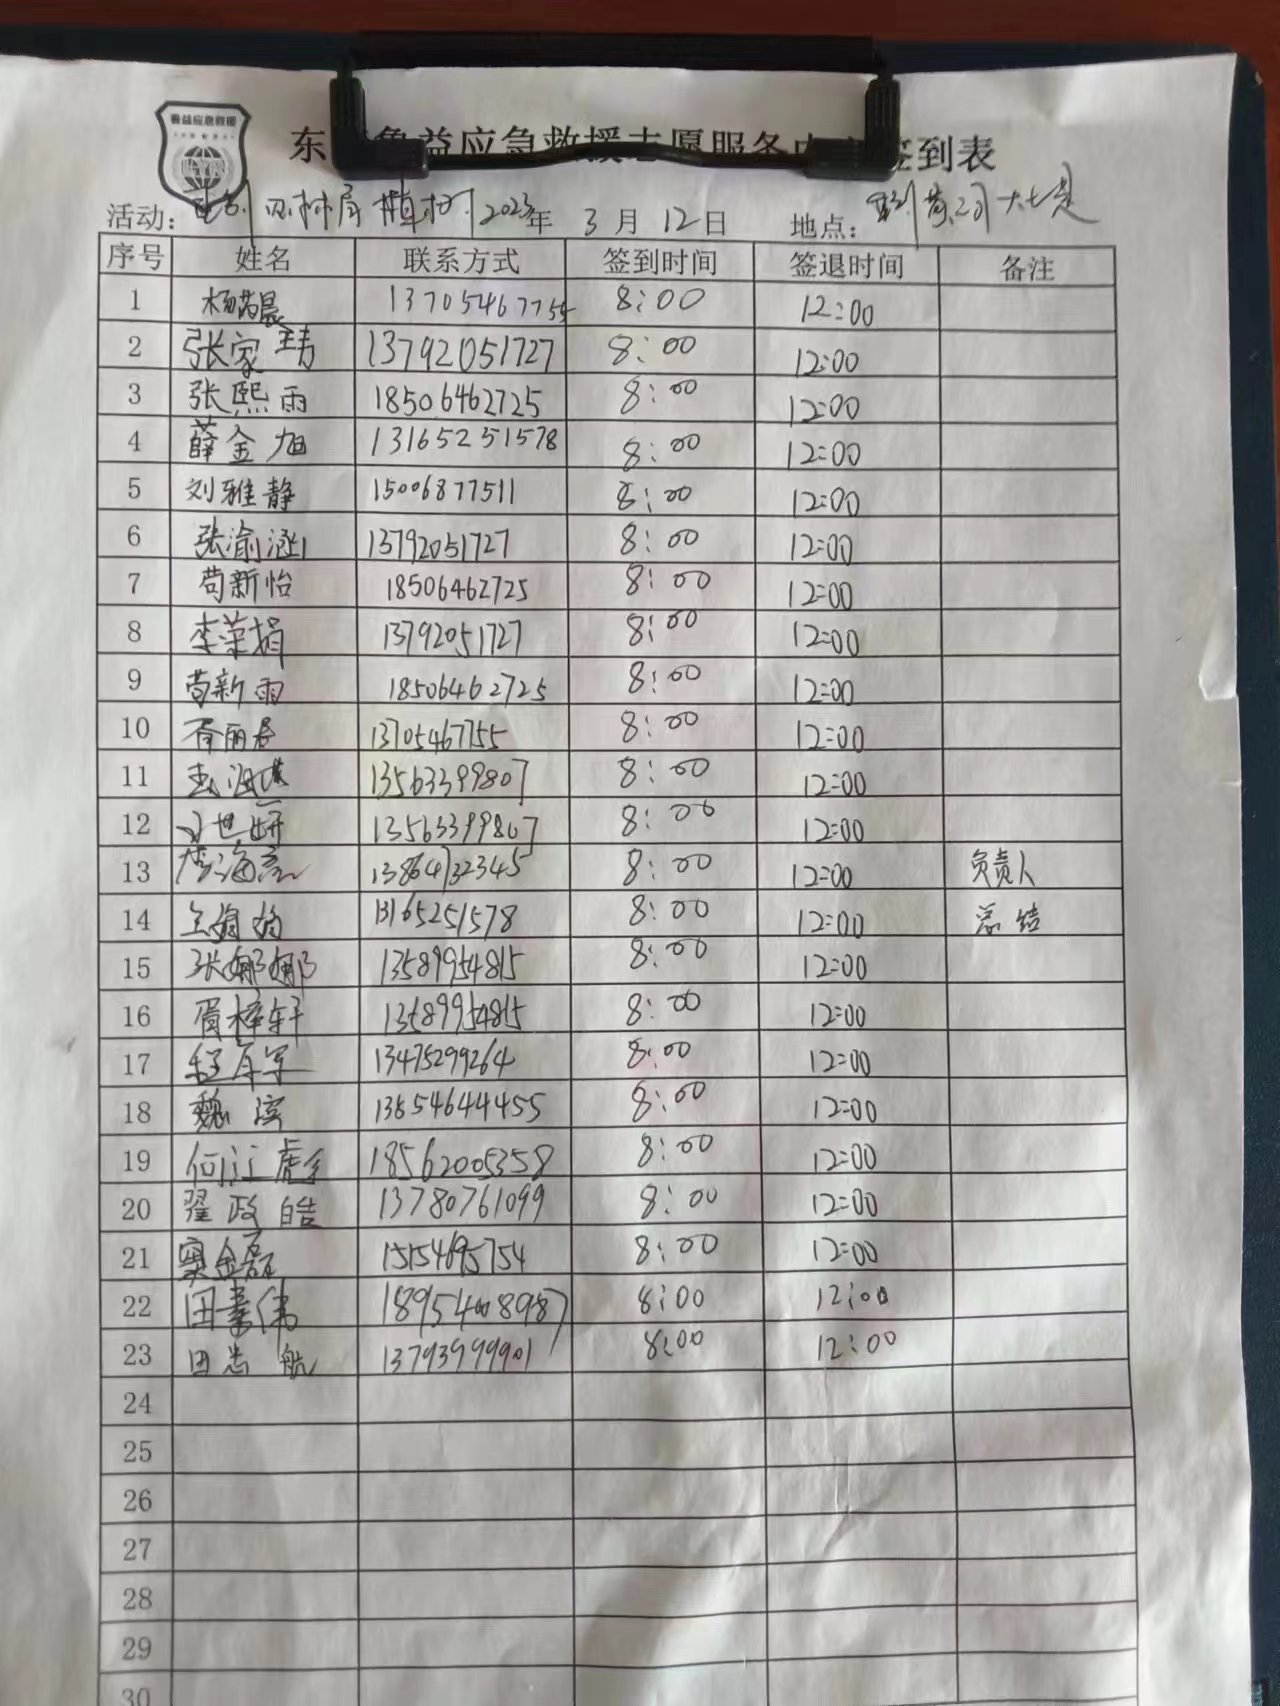 鲁益应急救援
东 鲁益应急救援志愿服务中 签到表
活动: 植树 2023年 3月12日 地点:
序号 姓名 联系方式 签到时间 签退时间 备注
1 杨芮晨 13705467755 8:00 12:00
2 张家玮 13792051727 8:00 12:00
3 张熙雨 18506462725 8:00 12:00
4 薛金旭 13165251578 8:00 12:00
5 刘雅静 15006877511 8:00 12:00
6 张渝涵 13792051727 8:00 12:00
7 苟新怡 18506462725 8:00 12:00
8 李荣娟 13792051727 8:00 12:00
9 苟新雨 18506462725 8:00 12:00
10 胥丽君 13705467755 8:00 12:00
11 13563399807 8:00 12:00
12 世妍 13563399807 8:00 12:00
13 李海亮 13864732345 8:00 12:00 负责人
14 王娟娟 13165251578 8:00 12:00 总结
15 张娜娜 13589954815 8:00 12:00
16 胥梓轩 13589954815 8:00 12:00
17 13475299264 8:00 12:00
18 魏滨 13854644455 8:00 12:00
19 何江 18562005358 8:00 12:00
20 翟政皓 13780761099 8:00 12:00
21 窦金磊 15154695754 8:00 12:00
22 田素伟 18954008987 8:00 12:00
23 田志航 13793999901 8:00 12:00
24
25
26
27
28
29
30